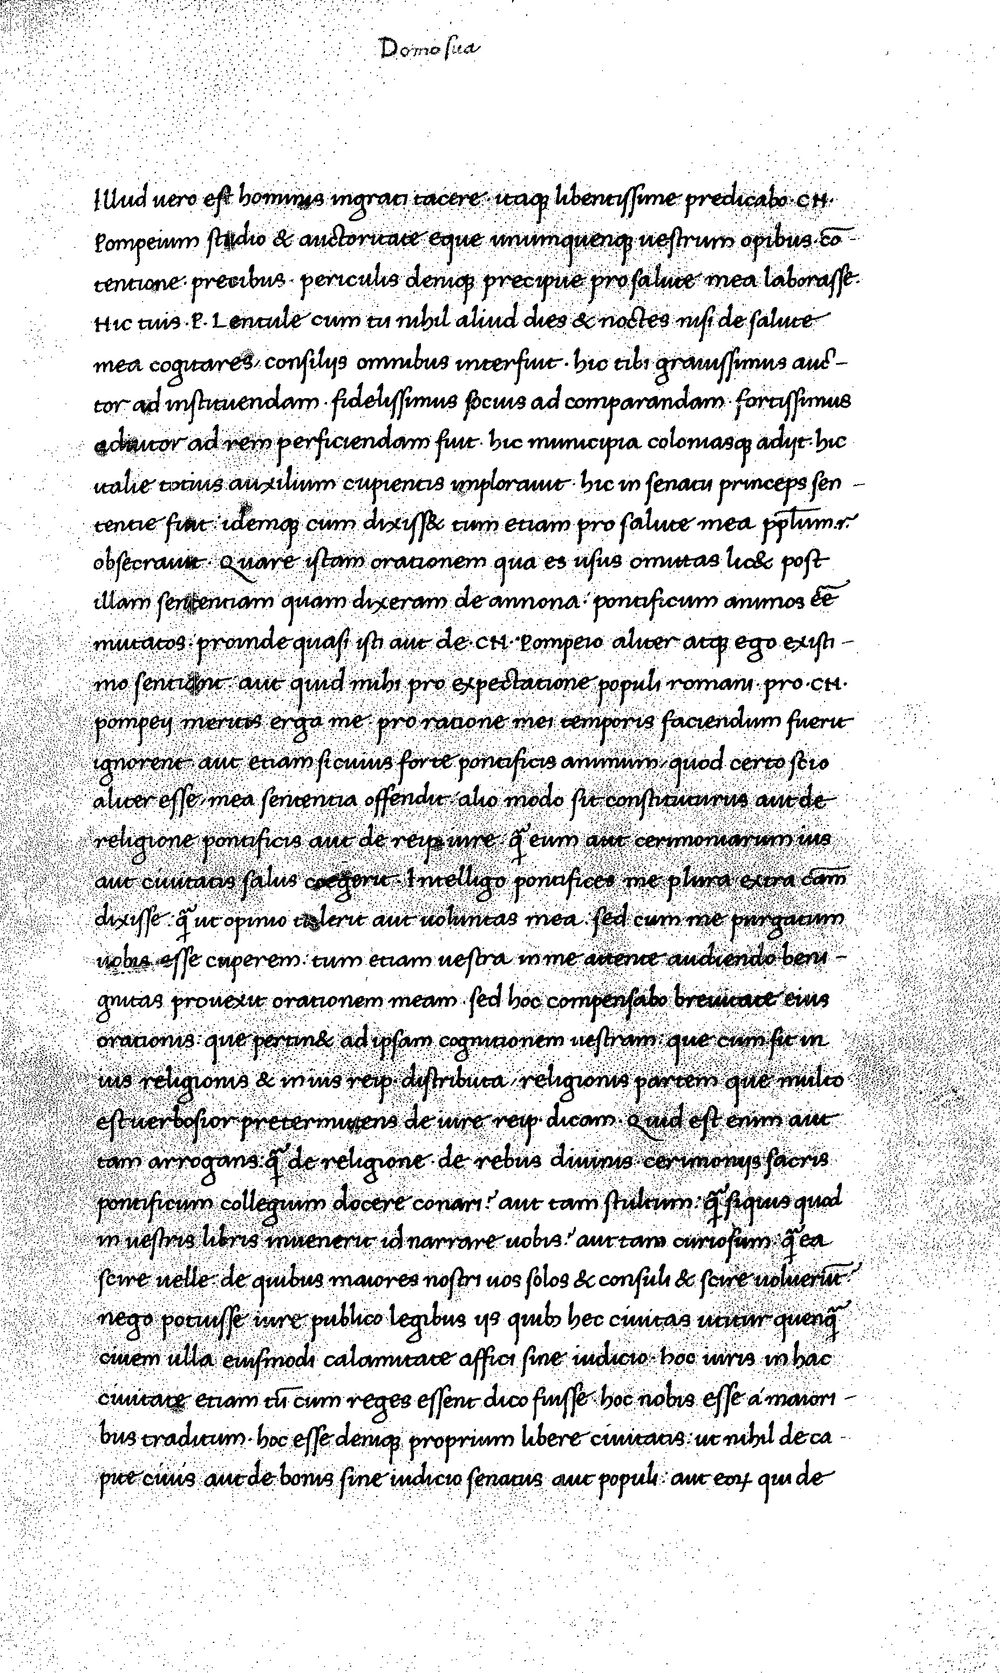 Domo sua
Illud uero est hominis ingrati tacere · itaqꝫ libentissime predicabo · CN ·
Pompeium studio & auctoritate eque unumquenqꝫ uestrum opibus · cō-
tentione · precibus · periculis deniqꝫ precipue pro salute mea laborasse ·
Hic tuis · P · Lentule cum tu nihil aliud dies & noctes nisi de salute
mea cogitares / consilijs omnibus interfuit · hic tibi grauissimus auc-
tor ad instituendam · fidelissimus socius ad comparandam · fortissimus
adiutor ad rem perficiendam fuit · hic municipia coloniasqꝫ adijt · hic
italie totius auxilium cupientis implorauit · hic in senatu princeps sen-
tentie fuit · idemqꝫ cum dixiss& tum etiam pro salute mea pplūm · r ·
obsecrauit · Quare istam orationem qua es usus omittas lic& post
illam sententiam quam dixeram de annona : pontificum animos eē
mutatos · proinde quasi isti aut de · CN · Pompeio aliter atqꝫ ego existi-
mo sentiant · aut quid mihi pro expectatione populi romani · pro · CN ·
pompeij meritis erga me · pro ratione mei temporis faciendum fuerit
ignorent · aut etiam si cuius forte pontificis animum / quod certo scio
aliter esse / mea sententia offendit / alio modo sit constituturus aut de
religione pontificis aut de reip · iure · q̄ eum aut cerimoniarum ius
aut ciuitatis salus coegerit · Intelligo pontifices me plura extra cām
dixisse · q̄ ut opinio tulerit aut uoluntas mea · sed cum me purgatum
uobis esse cuperem : tum etiam uestra in me attente audiendo beni-
gnitas prouexit orationem meam · sed hoc compensabo breuitate eius
orationis : que pertin& ad ipsam cognitionem uestram : que cum sit in
ius religionis & in ius reip · distributa / religionis partem que multo
est uerbosior pretermittens de iure reip · dicam · Quid est enim aut
tam arrogans : q̄ de religione · de rebus diuinis · cerimonijs sacris
pontificum collegium docere conari ? aut tam stultum : q̄ siquis quod
in uestris libris inuenerit id narrare uobis ? aut tam curiosum : q̄ ea
scire uelle · de quibus maiores nostri uos solos & consuli & scire uoluerūt ?
nego potuisse iure publico legibus ijs quibꝫ hec ciuitas utitur quenq̄
ciuem ulla eiusmodi calamitate affici sine iudicio · hoc iuris in hac
ciuitate etiam tū cum reges essent dico fuisse · hoc nobis esse a maiori-
bus traditum · hoc esse deniqꝫ proprium libere ciuitatis : ut nihil de ca-
pite ciuis aut de bonis sine iudicio senatus aut populi : aut eoꝝ qui de